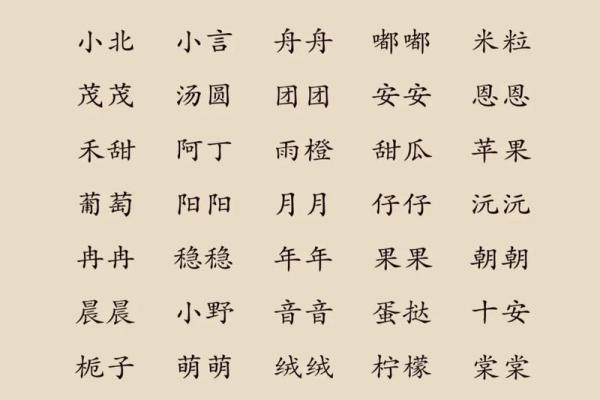 小北 小言 舟舟 嘟嘟 米粒
茂茂 汤圆 团团 安安 恩恩
禾甜 阿丁 雨橙 甜瓜 苹果
葡萄 阳阳 月月 仔仔 沅沅
冉冉 稳稳 年年 果果 朝朝
晨晨 小野 音音 蛋挞 十安
栀子 萌萌 绒绒 柠檬 棠棠